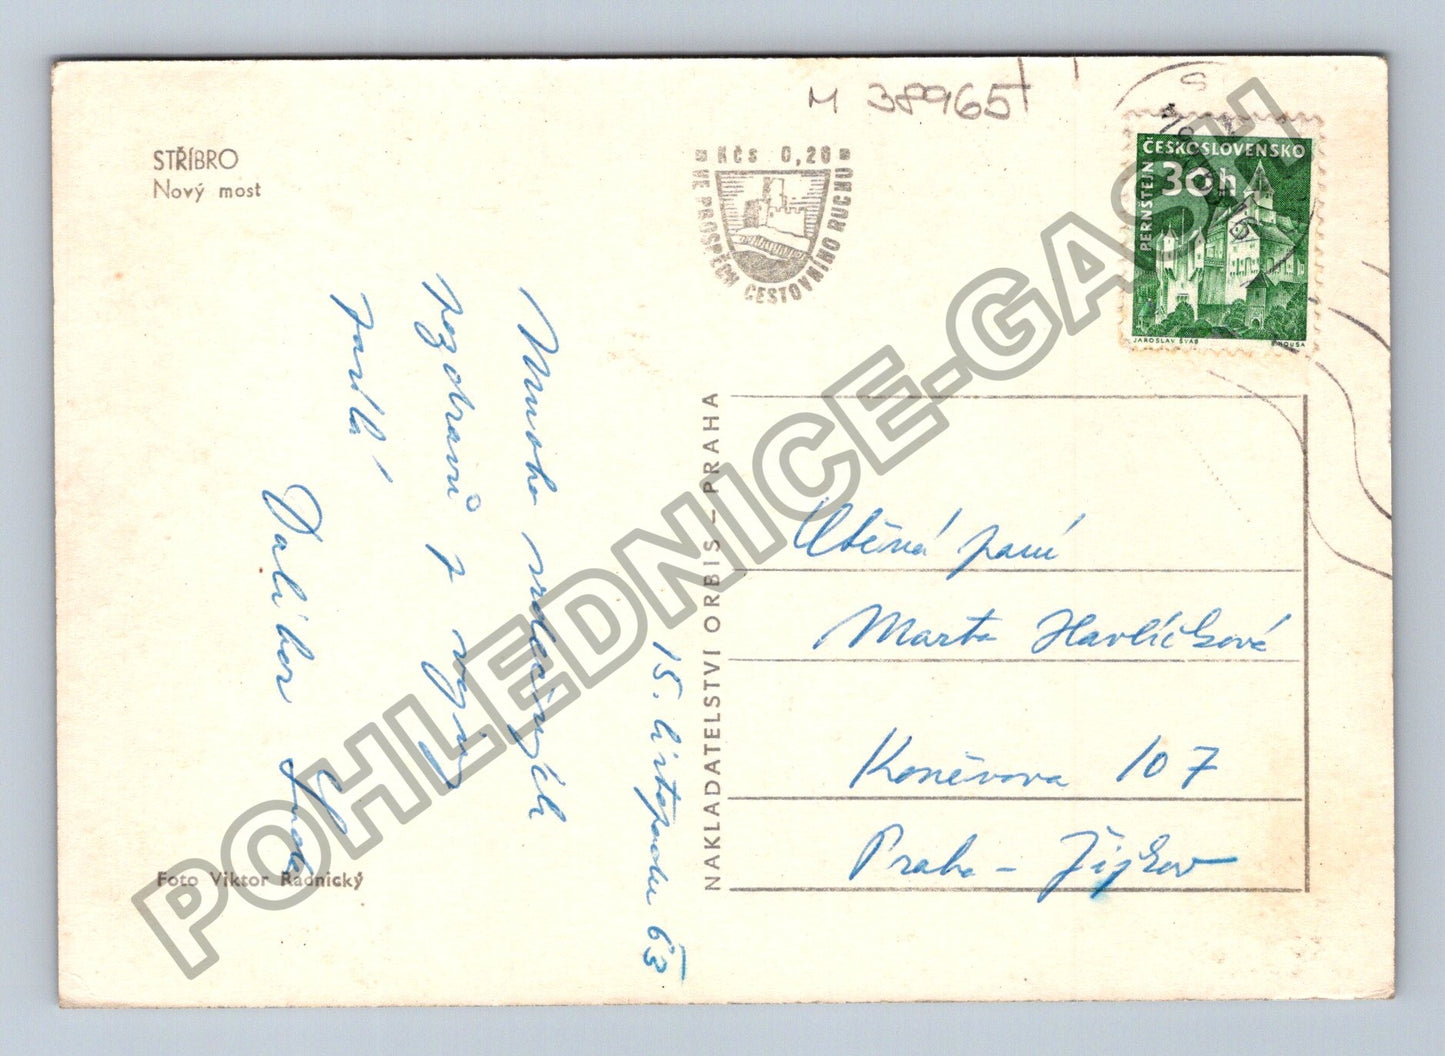 M 38965
STŘÍBRO
Nový most
Kčs 0,20
VE PROSPĚCH CESTOVNÍHO RUCHU
ČESKOSLOVENSKO
30h
PERNŠTEJN
JAROSLAV ŠVÁB
Mnoho srdečných
pozdravů z
zasílá
Dalibor
15. listopadu 63
NAKLADATELSTVÍ ORBIS – PRAHA
Ctěná paní
Marta Havlíčková
Koněvova 107
Praha – Žižkov
Foto Viktor Radnický
POHLEDNICE-GASH